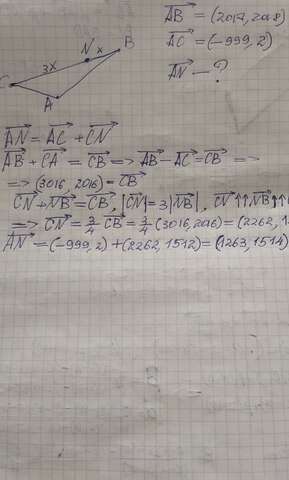 AB = (2017, 2018)
AC = (-999, 2)
AN — ?
B
N x
3x
C
A
AN = AC + CN
AB + CA = CB => AB - AC = CB =>
=> (3016, 2016) = CB
CN + NB = CB, |CN| = 3|NB|, CN ↑↑ NB ↑↑
=> CN = 3/4 CB = 3/4 (3016, 2016) = (2262, 1
AN = (-999, 2) + (2262, 1512) = (1263, 1514)